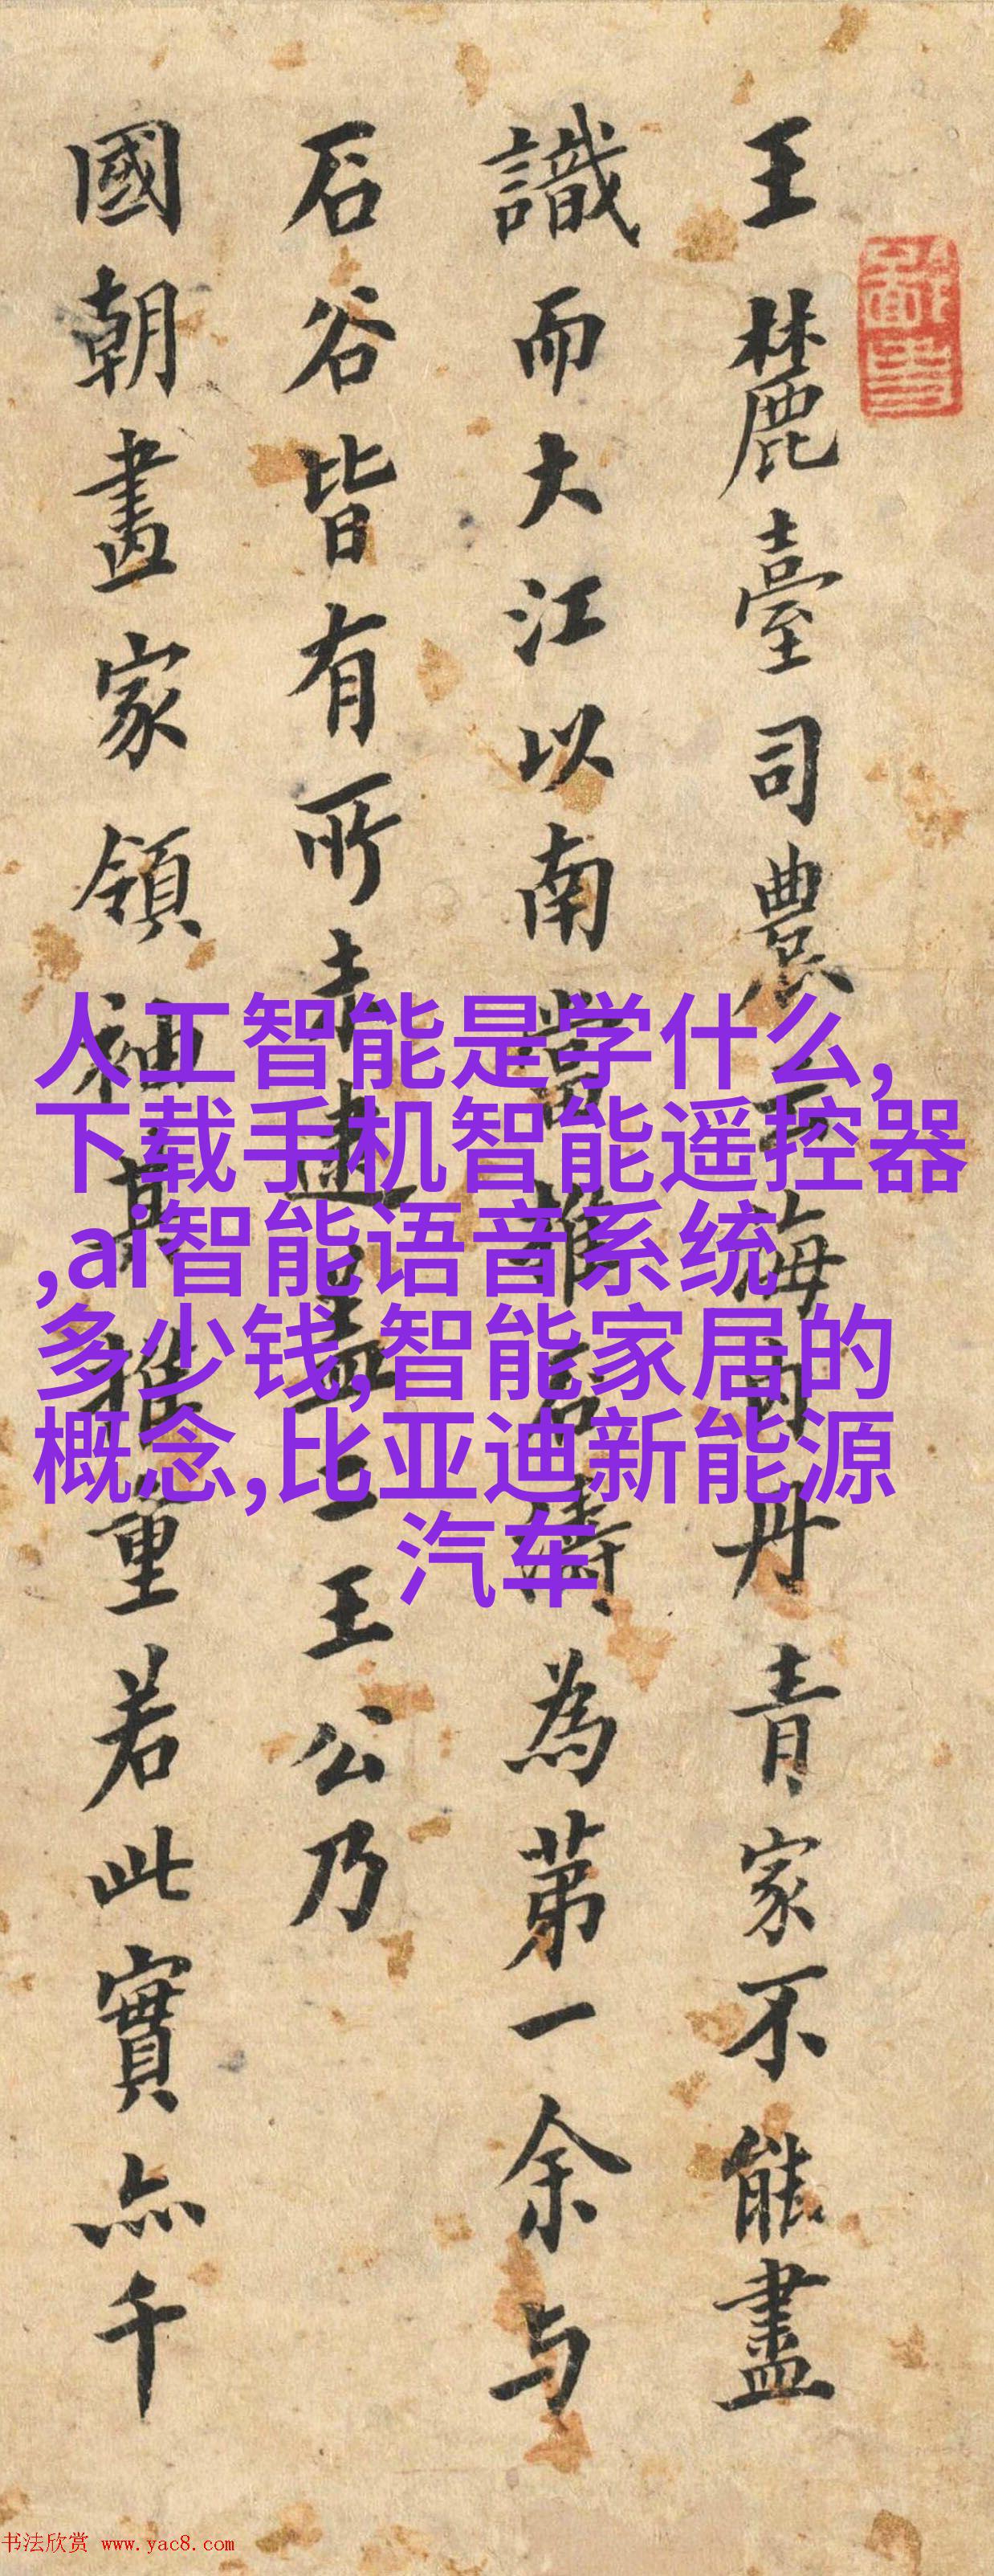 王麓臺司農云海内丹青家不能盡
識而大江以南當推石濤為第一余与
石谷皆有所未逮盖二王公乃
國朝畫家領袖其推重若此實亦千
人工智能是学什么,
下载手机智能遥控器
,ai智能语音系统
多少钱,智能家居的
概念,比亚迪新能源
汽车
书法欣赏 www.yac8.com